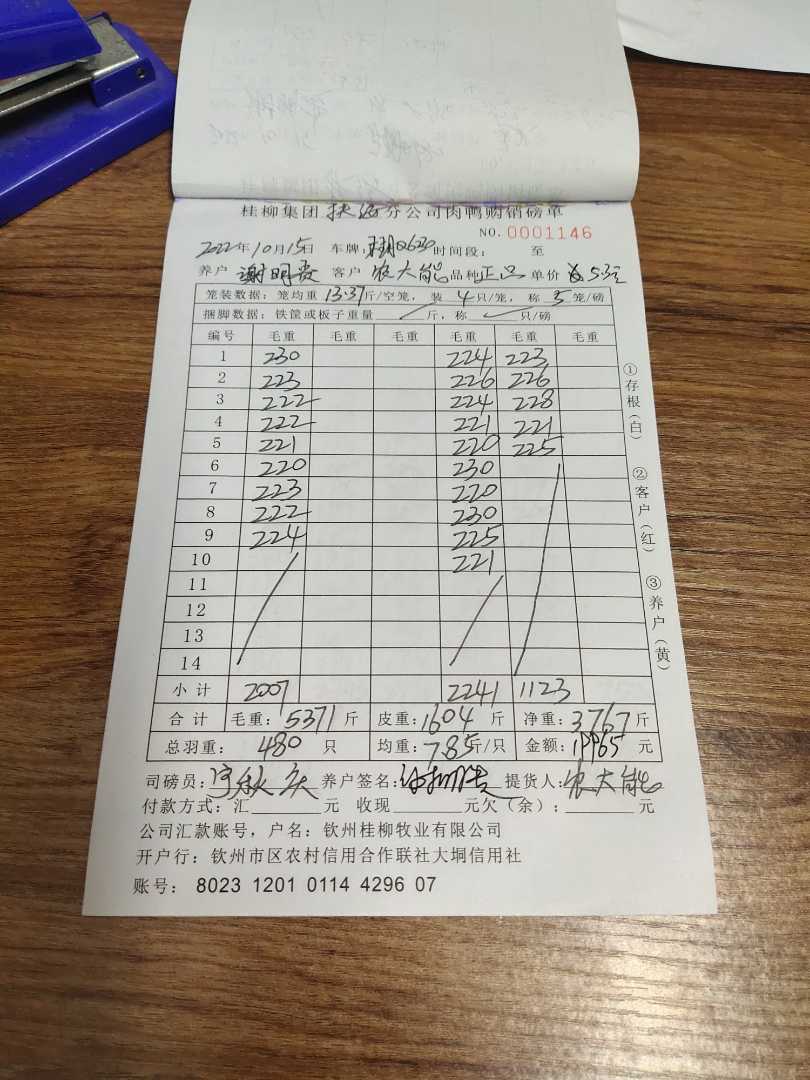 桂柳集团扶绥分公司肉鸭购销磅单
NO.0001146
2022年10月15日 车牌: 0630 时间段: 至
养户 谢明贵 客户 农大能 品种 正品 单价 5.3元
笼装数据: 笼均重 13.37斤/空笼, 装 4只/笼, 称 5笼/磅
捆脚数据: 铁筐或板子重量 斤, 称 只/磅
编号 毛重 毛重 毛重 毛重 毛重 毛重
1 230 224 223
2 223 226 226
3 222 224 228
4 222 221 221
5 221 220 225
6 220 230
7 223 220
8 222 230
9 224 225
10 221
11
12
13
14
小计 2007 2241 1123
合计 毛重: 5371斤 皮重: 1604斤 净重: 3767斤
总羽重: 480只 均重: 7.85斤/只 金额: 19965元
司磅员: 养户签名: 提货人: 农大能
付款方式: 汇 元 收现 元欠(余): 元
公司汇款账号, 户名: 钦州桂柳牧业有限公司
开户行: 钦州市区农村信用合作联社大垌信用社
账号: 8023 1201 0114 4296 07
①存根(白)
②客户(红)
③养户(黄)